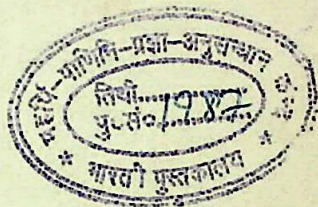 महर्षि-पाणिनि-प्रज्ञा-अनुसन्धान
तिथी..........
पु०सं० 1982
* भारती पुस्तकालय *